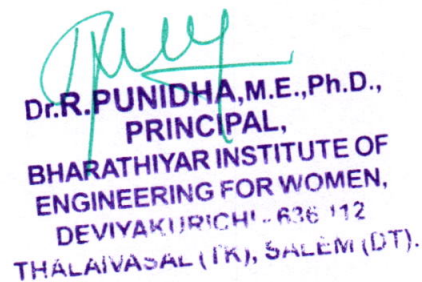 Dr.R.PUNIDHA,M.E.,Ph.D.,
PRINCIPAL,
BHARATHIYAR INSTITUTE OF
ENGINEERING FOR WOMEN,
DEVIYAKURICHI - 636 112
THALAIVASAL (TK), SALEM (DT).